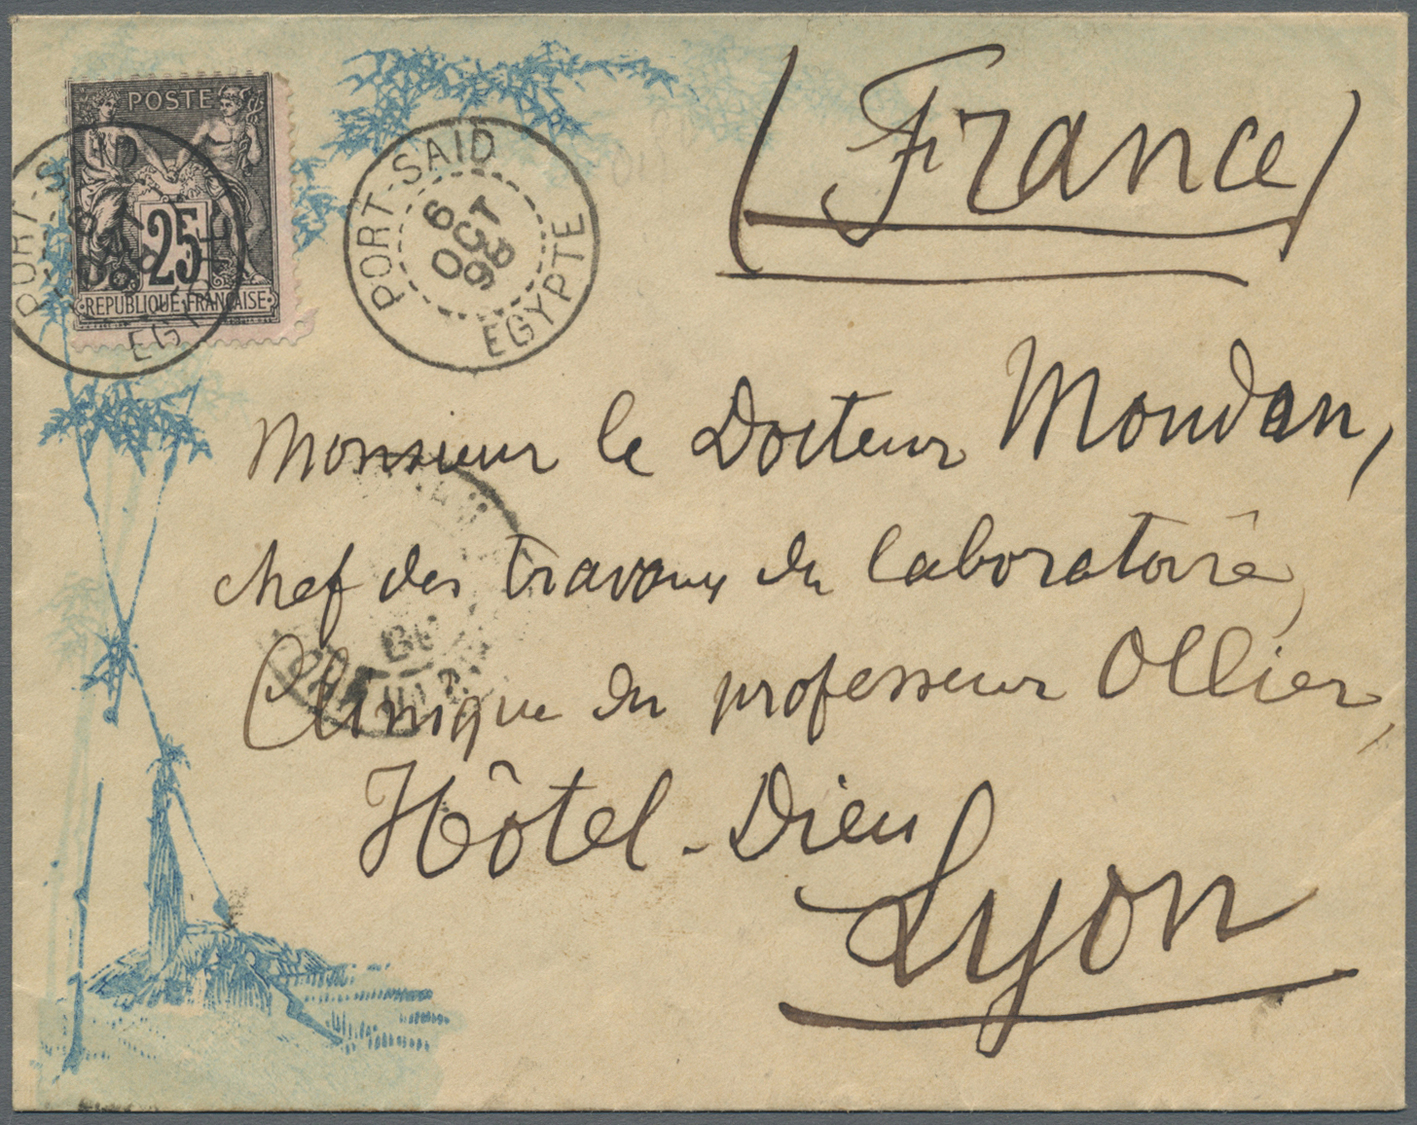 POSTE
25
REPUBLIQUE FRANÇAISE
PORT-SAID
EGYPTE
PORT-SAID
6
OCT
98
EGYPTE
(France)
Monsieur le Docteur Mondan,
chef des travaux du laboratoire,
Clinique du professeur Ollier,
Hôtel-Dieu
Lyon